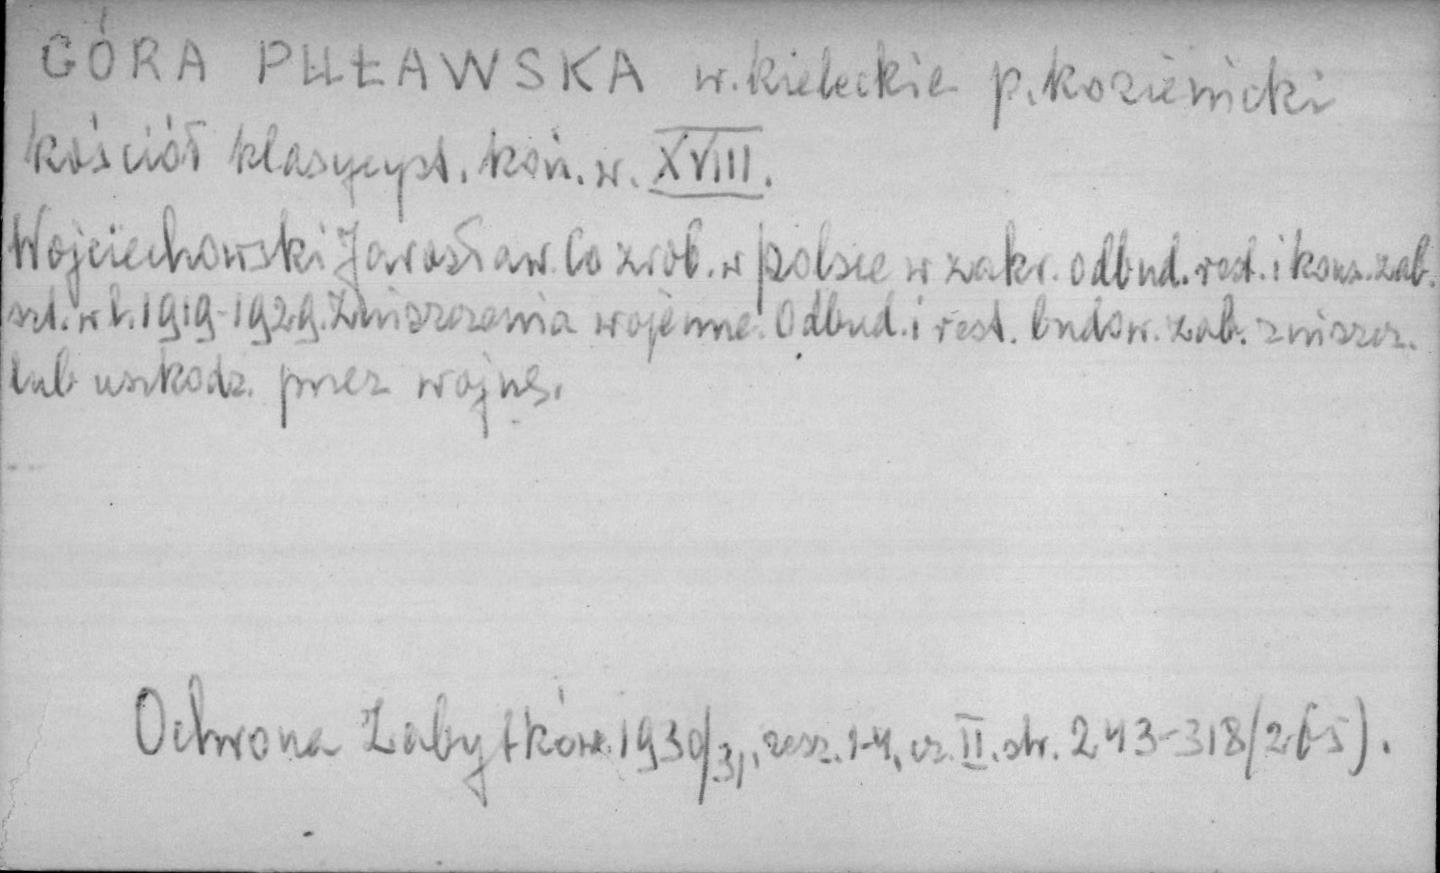 GÓRA PUŁAWSKA w. kieleckie p. kozienicki
kościół klasycyst. koń. w. XVIII.
Wojciechowski Jarosław. Co zrob. w Polsce w zakr. odbud. rest. i kons. zab.
szt. w l. 1919-1929. Zniszczenia wojenne. Odbud. i rest. budow. zab. zniszcz.
lub uszkodz. przez wojnę.
Ochrona Zabytków. 1930/31, zesz. 1-4, cz. II. str. 243-318/265).